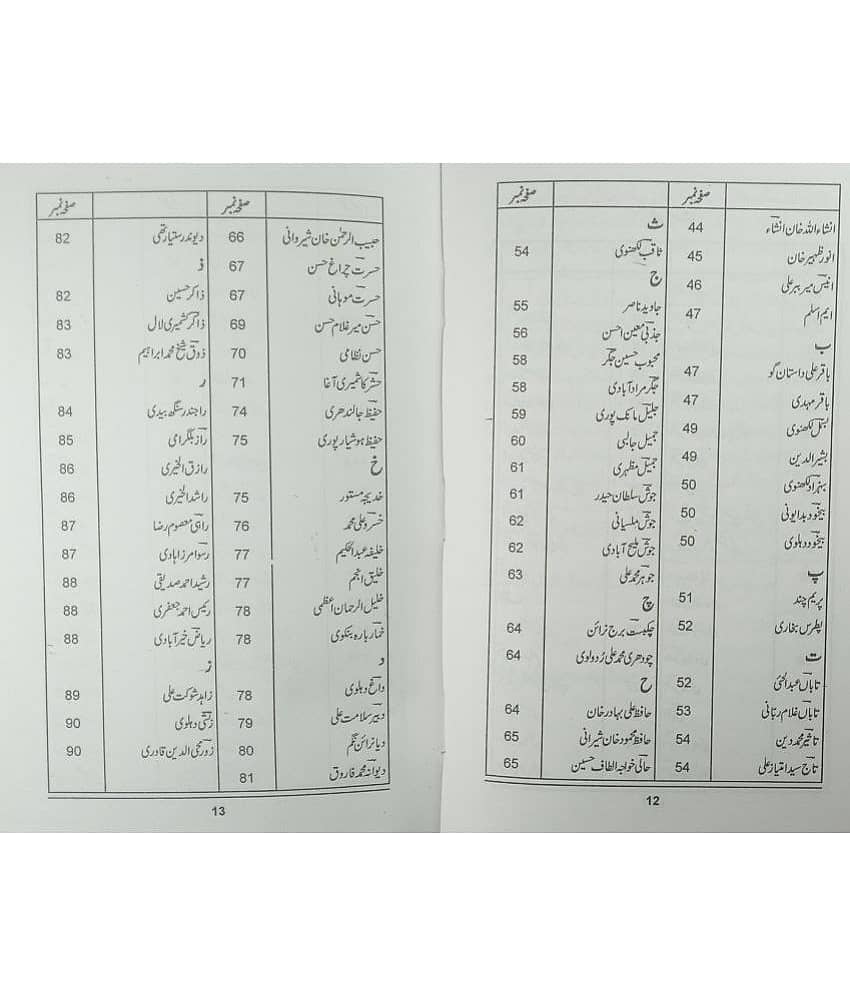 صفحہ نمبر
انشاء اللہ خان انشاء 44
انور ظہیر خان 45
انیس میر ببر علی 46
ایم اسلم 47
ب
باقر علی داستان گو 47
باقر مہدی 47
بسمل لکھنوی 49
بشیر الدین 49
بہزاد لکھنوی 50
بیخود بدایونی 50
بیخود دہلوی 50
پ
پریم چند 51
پطرس بخاری 52
ت
تاباں عبدالحئی 52
تاباں غلام ربانی 53
تاثیر محمد دین 54
تاج سید امتیاز علی 54
صفحہ نمبر
ث
ثاقب لکھنوی 54
ج
جاوید ناصر 55
جذبی معین احسن 56
محبوب حسین جگر 58
جگر مراد آبادی 58
جلیل مانک پوری 59
جمیل جالبی 60
جمیل مظہری 61
جوش سلطان حیدر 61
جوش ملسیانی 62
جوش ملیح آبادی 62
جوہر محمد علی 63
چ
چکبست برج نرائن 64
چودھری محمد علی رُدولوی 64
ح
حافظ علی بہادر خان 64
حافظ محمود خان شیرانی 65
حالی خواجہ الطاف حسین 65
12
صفحہ نمبر
حبیب الرحمٰن خان شیروانی 66
حسرت چراغ حسن 67
حسرت موہانی 67
حسن میر غلام حسن 69
حسن نظامی 70
حشر کاشمیری آغا 71
حفیظ جالندھری 74
حفیظ ہوشیار پوری 75
خ
خدیجہ مستور 75
خسرو علی محمد 76
خلیفہ عبدالحکیم 77
خلیق انجم 77
خلیل الرحمان اعظمی 78
خمار بارہ بنکوی 78
د
داغ دہلوی 78
دبیر سلامت علی 79
دیا نرائن نگم 80
دیوانہ محمد فاروق 81
صفحہ نمبر
دیوندر ستیارتھی 82
ذ
ذاکر حسین 82
ذاکر کشمیری لال 83
ذوق شیخ محمد ابراہیم 83
ر
راجندر سنگھ بیدی 84
راز بلگرامی 85
رازق الخیری 86
راشد الخیری 86
راہی معصوم رضا 87
رسوا مرزا ہادی 87
رشید احمد صدیقی 88
رئیس احمد جعفری 88
ریاض خیر آبادی 88
ز
زاہد شوکت علی 89
زتشی دہلوی 90
زور محی الدین قادری 90
13